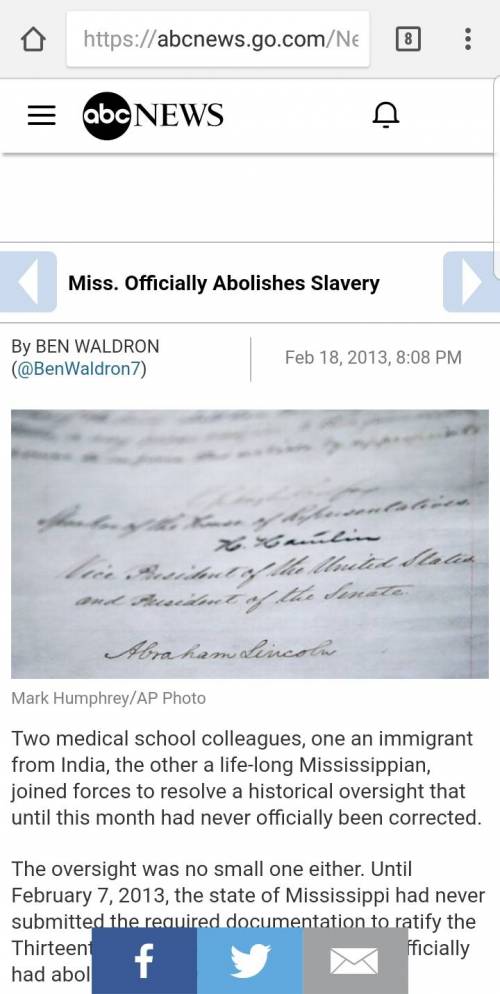 https://abcnews.go.com/Ne
8
abc NEWS
Miss. Officially Abolishes Slavery
By BEN WALDRON
(@BenWaldron7)
Feb 18, 2013, 8:08 PM
Speaker of the House of Representatives.
H. Hamlin
Vice President of the United States
and President of the Senate.
Abraham Lincoln
Mark Humphrey/AP Photo
Two medical school colleagues, one an immigrant
from India, the other a life-long Mississippian,
joined forces to resolve a historical oversight that
until this month had never officially been corrected.
The oversight was no small one either. Until
February 7, 2013, the state of Mississippi had never
submitted the required documentation to ratify the
f